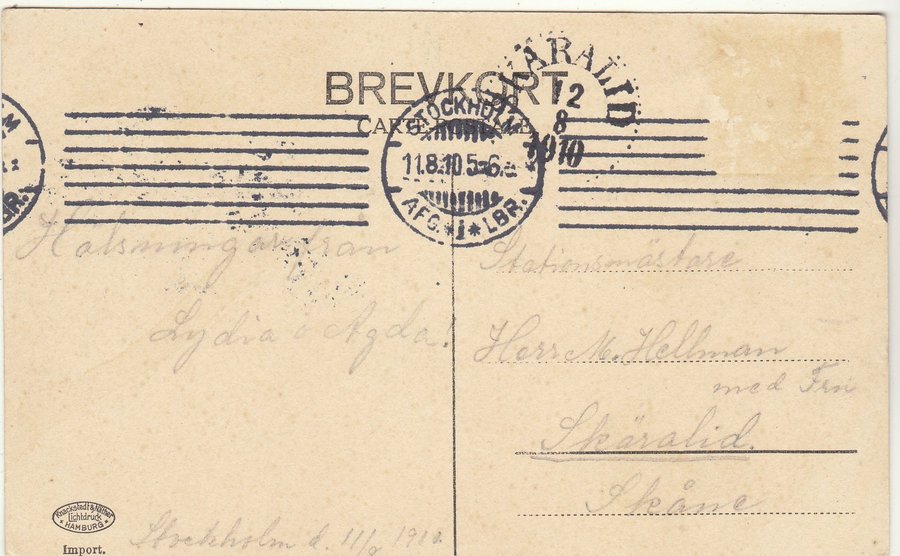 BREVKORT
CARTE POSTALE
SKÄRALID
12
8
1910
STOCKHOLM
11.8.10 5-6 e
AFG. * 1 * LBR.
M
LBR.
Hälsningar från
Lydia o Agda!
Stockholm d. 11/8 1910.
Stationsmästare
Herr M. Hellman
med Fru
Skäralid.
Skåne
Knackstedt & Näther
Lichtdruck
* HAMBURG *
Import.